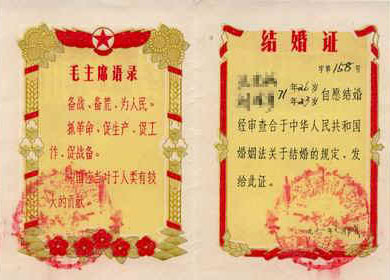 毛主席语录
备战、备荒、为人民。
抓革命，促生产，促工
作，促战备。
中国应当对于人类有较
大的贡献。
结婚证
字第158号
71年26岁
年23岁 自愿结婚
经审查合于中华人民共和国
婚姻法关于结婚的规定，发
给此证。